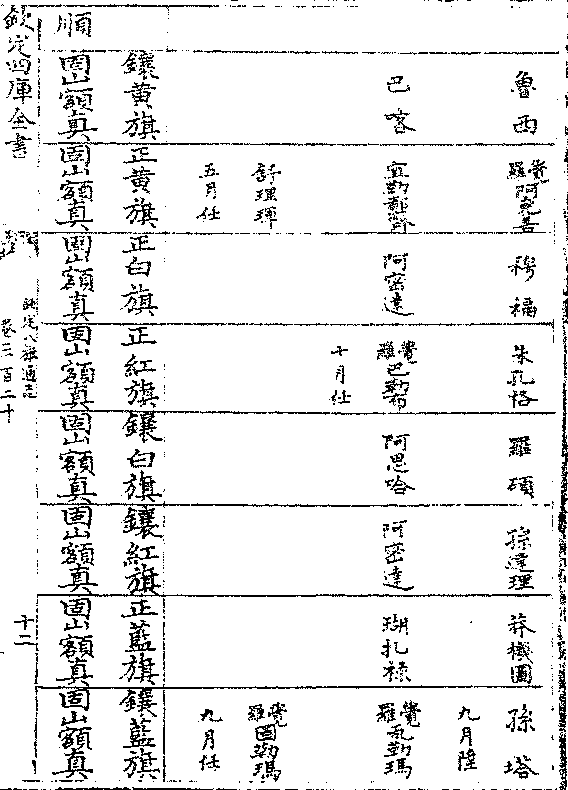 魯西
覺羅阿克善
穆福
朱孔恪
羅碩
孫達理
莽機圖
孫塔
九月陞
巴喀
阿密達
覺羅巴勒布
阿思哈
阿密達
瑚扎祿
覺羅 勒瑪
十月任
舒理琿
覺羅固勒瑪
五月任
九月任
鑲黃旗
正黃旗
正白旗
正紅旗
鑲白旗
鑲紅旗
正藍旗
鑲藍旗
順
固山額真
固山額真
固山額真
固山額真
固山額真
固山額真
固山額真
固山額真
欽定四庫全書
欽定八旗通志
卷三百二十
十二